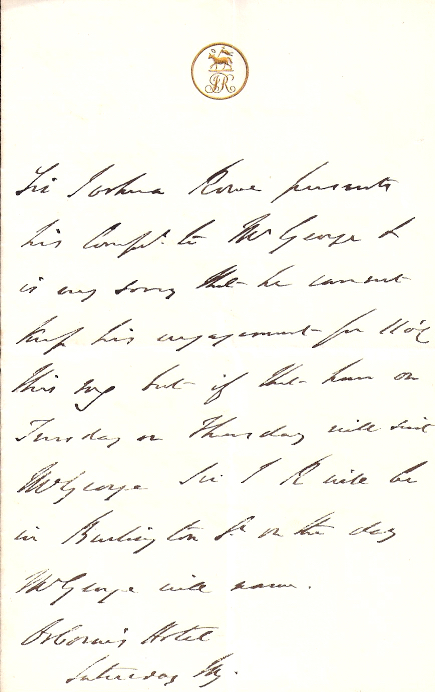 JR
Sir Joshua Rowe presents
his Compts. to Mr George &
is very sorry that he cannot
keep his engagement for 11 o'c
this mg but if that hour on
Tuesday or Thursday will suit
Mr George Sir J R will be
in Burlington St on the day
Mr George will name.
Osborne's Hotel
Saturday Mg.